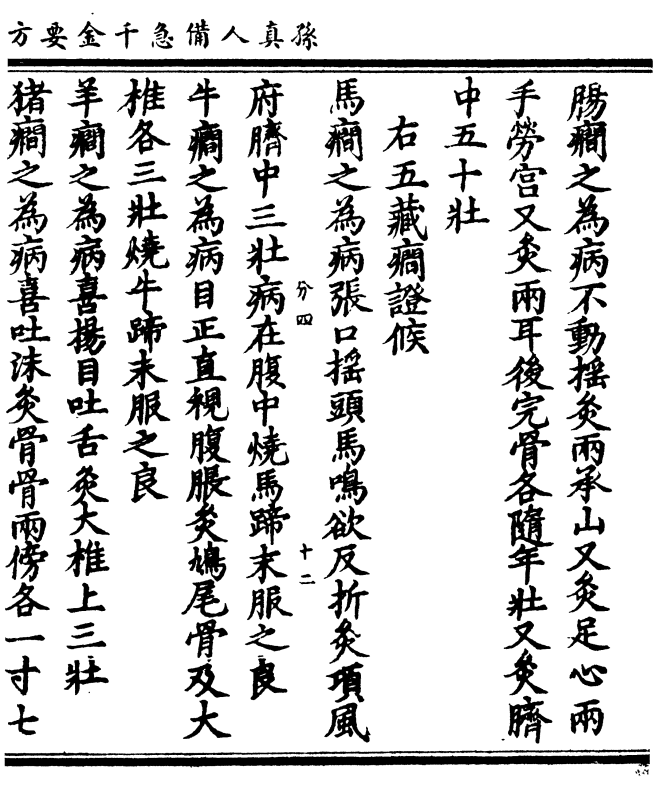 孫真人備急千金要方
腸癇之為病不動搖灸兩承山又灸足心兩
手勞宮又灸兩耳後完骨各隨年壯又灸臍
中五十壯
右五藏癇證候
馬癇之為病張口搖頭馬鳴欲反折灸項風
分四
十二
府臍中三壯病在腹中燒馬蹄末服之良
牛癇之為病目正直視腹脹灸鳩尾骨及大
椎各三壯燒牛蹄末服之良
羊癇之為病喜揚目吐舌灸大椎上三壯
猪癇之為病喜吐沫灸骨骨兩傍各一寸七